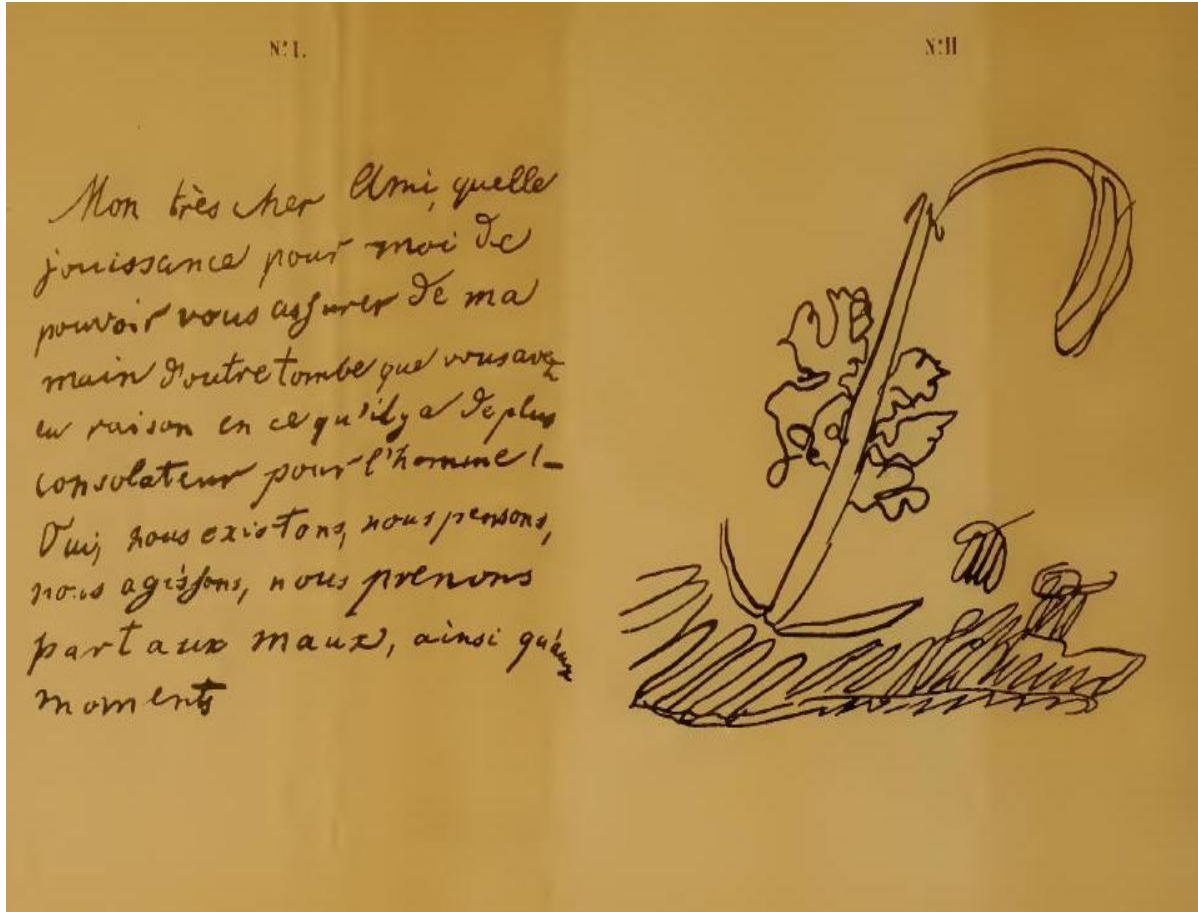 N° I.
Mon très cher Ami, quelle
jouissance pour moi de
pouvoir vous assurer de ma
main d'outre tombe que vous avez
eu raison en ce qu'il y a de plus
consolateur pour l'homme ! –
Oui, nous existons, nous pensons,
nous agissons, nous prenons
part aux maux, ainsi qu'aux
moments
N° II